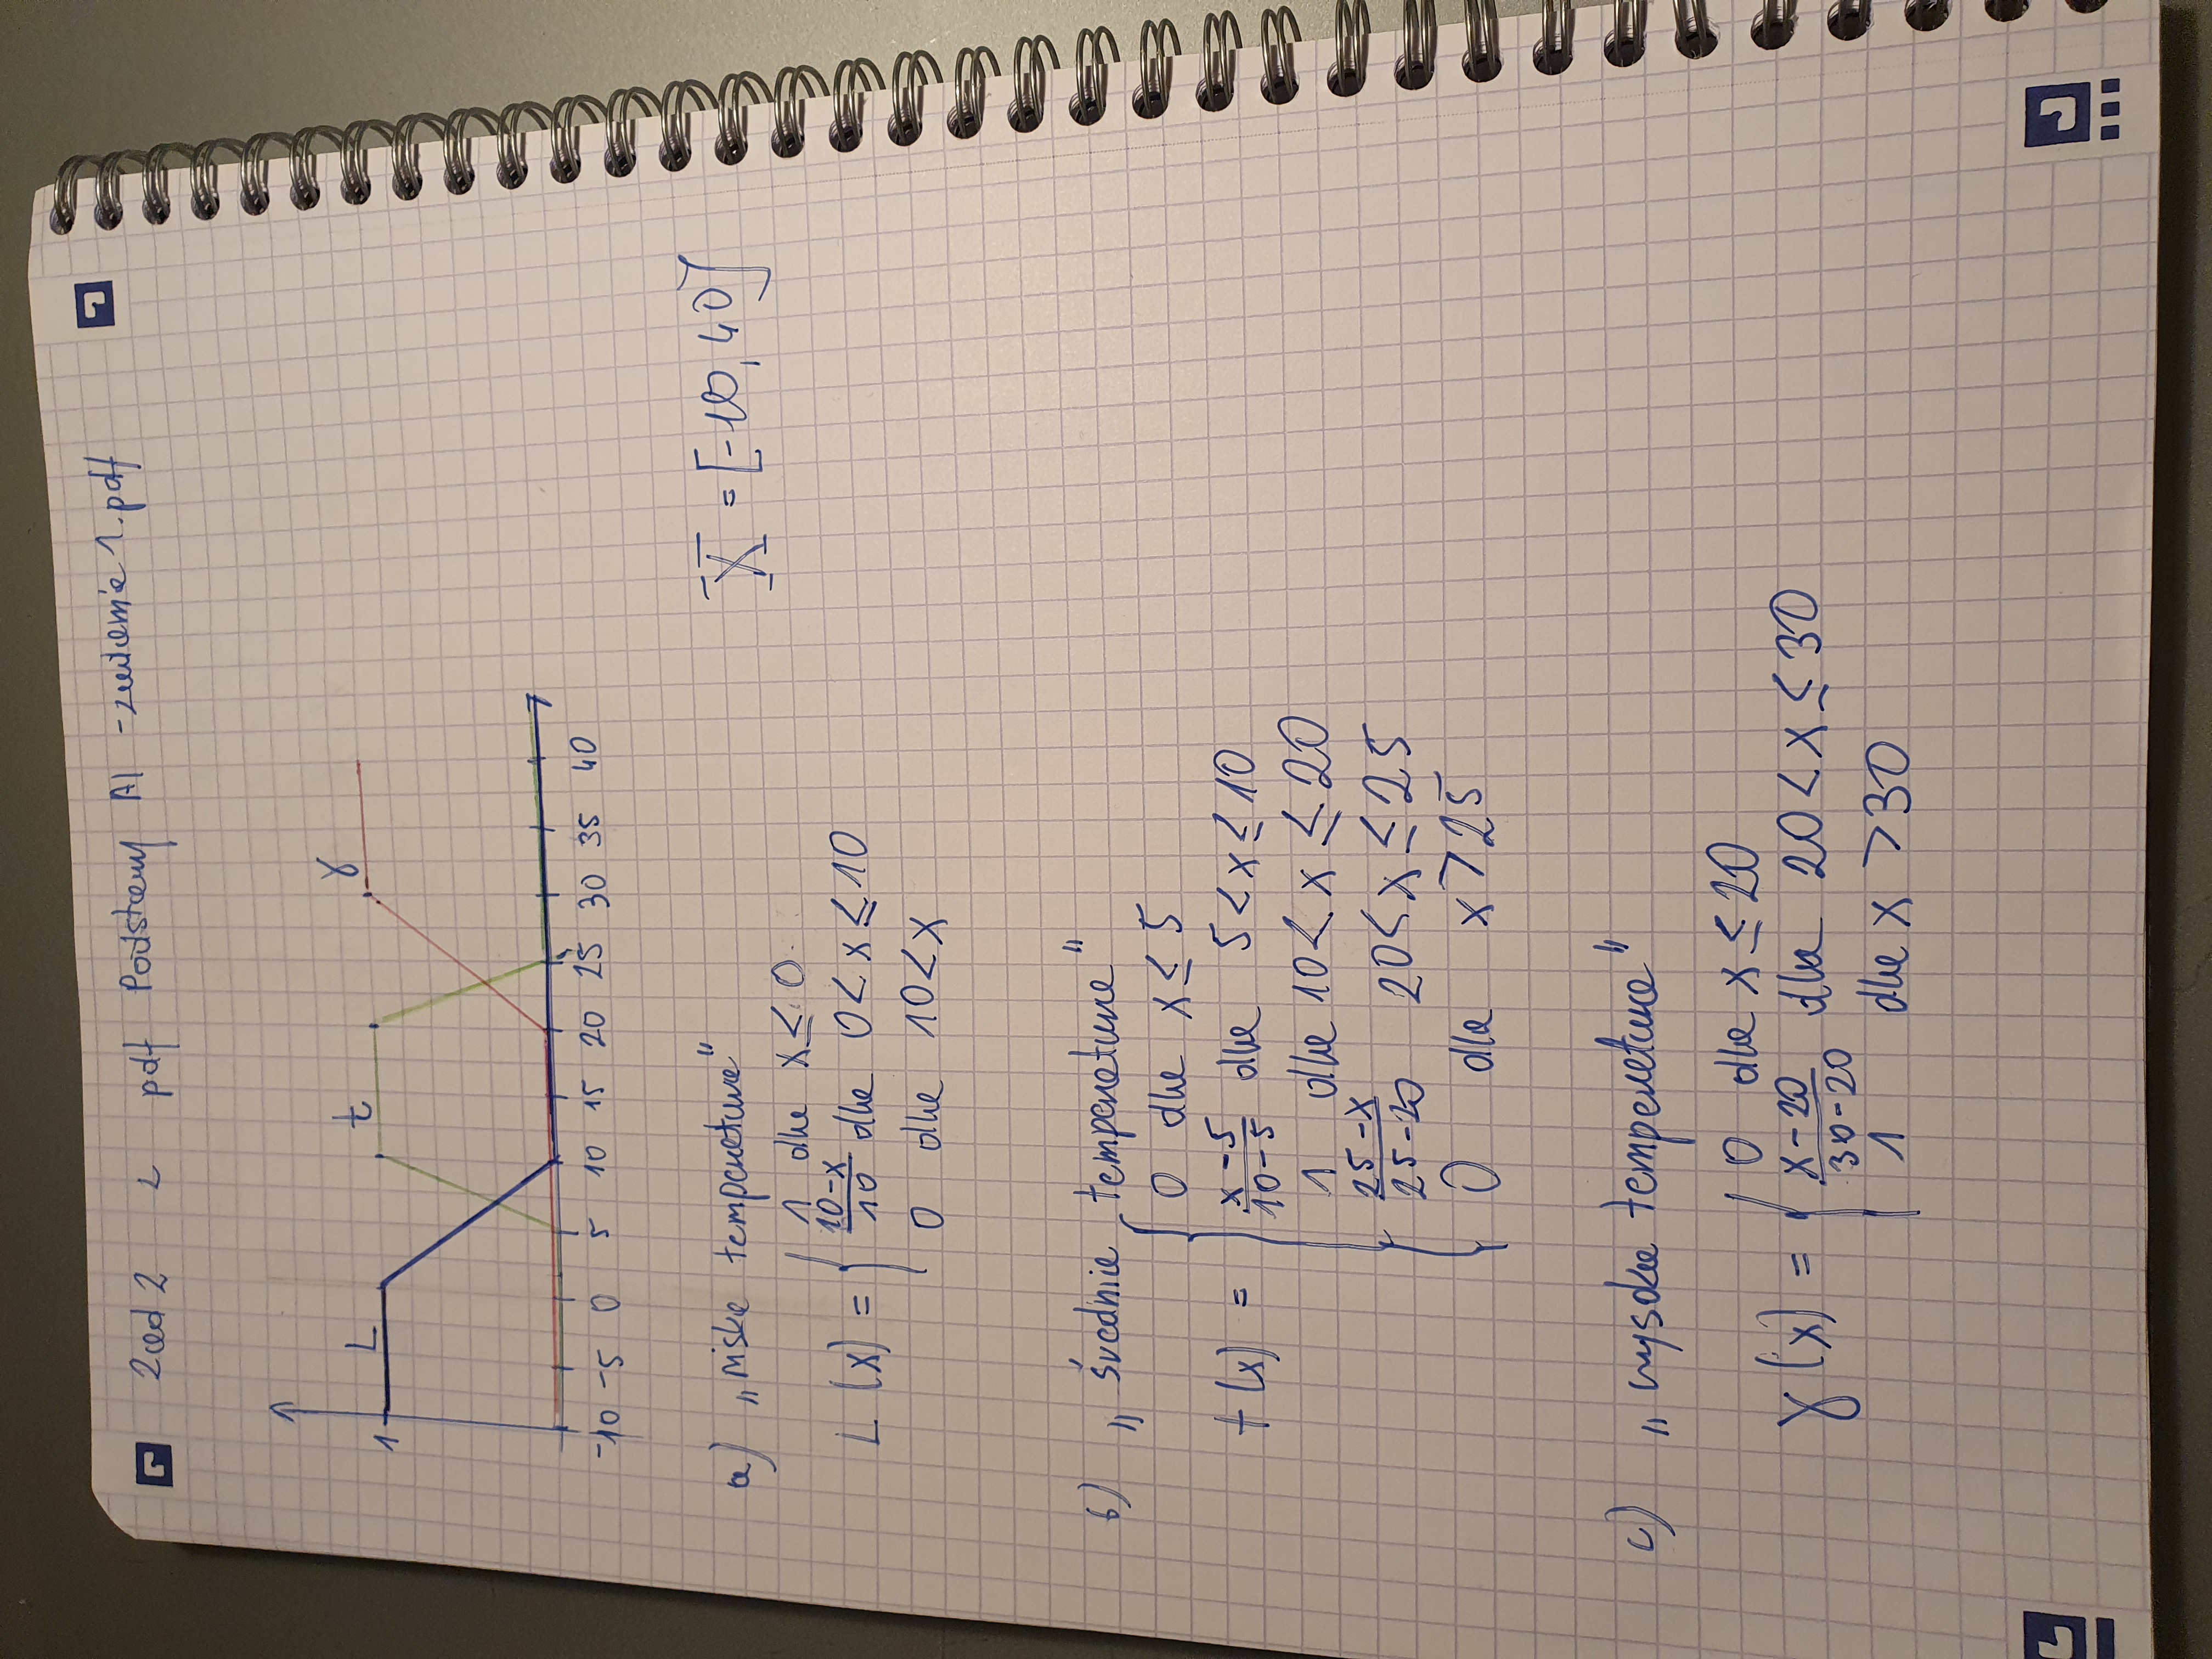 Zad 2 z pdf Podstawy AI - zadania 1.pdf
1 L t γ
-10 -5 0 5 10 15 20 25 30 35 40
a) „niska temperatura”
X = [-10, 40]
1 dla x ≤ 0
L (x) = { (10-x)/10 dla 0 < x ≤ 10
0 dla 10 < x
b) „średnia temperatura”
0 dla x ≤ 5
t (x) = { (x-5)/(10-5) dla 5 < x ≤ 10
1 dla 10 < x ≤ 20
(25-x)/(25-20) 20 < x ≤ 25
0 dla x > 25
c) „wysoka temperatura”
0 dla x ≤ 20
γ (x) = { (x-20)/(30-20) dla 20 < x ≤ 30
1 dla x > 30